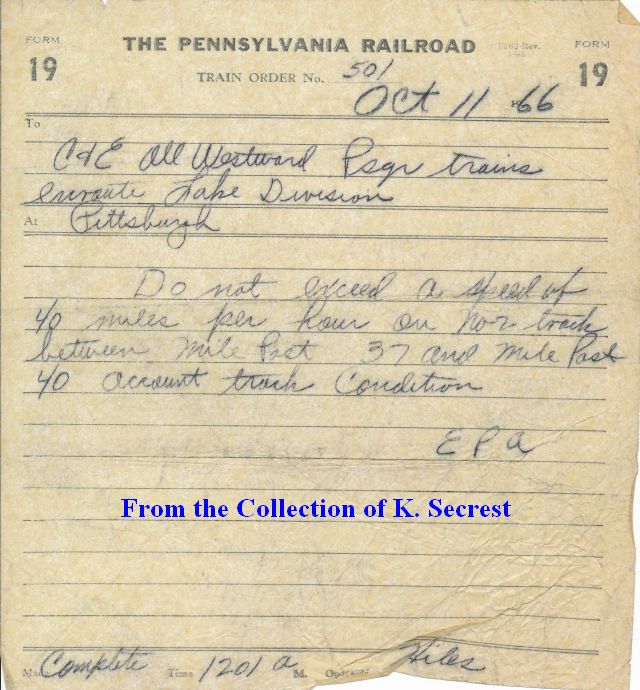 FORM THE PENNSYLVANIA RAILROAD FORM
19 TRAIN ORDER No. 501 19
Oct 11 1966
To
C&E All Westward Psgr trains
enroute Lake Division
At Pittsburgh
Do not exceed a speed of
40 miles per hour on No-2 track
between Mile Post 37 and Mile Post
40 account track Condition
E P A
From the Collection of K. Secrest
Made Complete Time 1201 a M. Operator Hiles